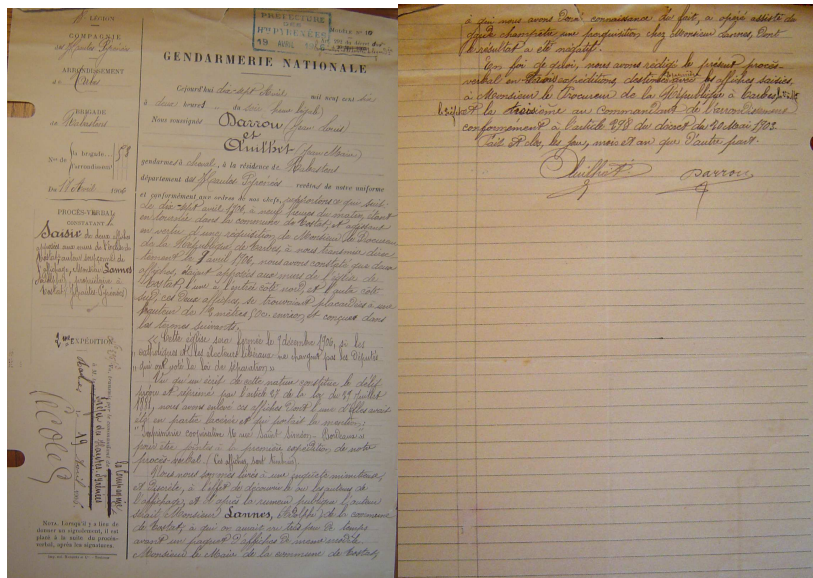 LÉGION
COMPAGNIE
des Hautes Pyrénées
ARRONDISSEMENT
de Tarbes
BRIGADE
de Rabastens
Nos de
la brigade
l'arrondissement
58
Du 18 Avril 1906
PROCÈS-VERBAL
CONSTATANT
Saisie de deux affiches
apposées aux murs de l'église de
Tostat; auteur soupçonné de
l'affichage, Monsieur Lannes
(Adolphe), propriétaire à
Tostat (Hautes Pyrénées)
2me EXPÉDITION
Tarbes 19 Avril 1906
NOTA. Lorsqu'il y a lieu de
donner un signalement, il est
placé à la suite du procès-
verbal, après les signatures.
PRÉFECTURE
DES
Htes PYRÉNÉES
19 AVRIL 1906
GENDARMERIE NATIONALE
Cejourd'hui dix-sept Avril mil neuf cent six
à deux heures du soir
Nous soussignés Darrou (Jean Louis)
et
Quilhet (Jean Marie)
gendarmes à cheval, à la résidence de Rabastens
département des Hautes Pyrénées, revêtus de notre uniforme
et conformément aux ordres de nos chefs, rapportons ce qui suit:
Le dix-sept avril 1906, à neuf heures du matin, étant
en tournée dans la commune de Tostat, et agissant
en vertu d'une réquisition de Monsieur le Procureur
de la République de Tarbes, à nous transmise
le 8 avril 1906, nous avons constaté que deux
affiches, étaient apposées aux murs de l'église de
Tostat, l'une à l'entrée côté nord, et l'autre côté
sud, ces deux affiches, se trouvaient placardées à une
hauteur de 2 mètres 50 environ, et conçues dans
les termes suivants:
« Cette église sera fermée le 9 décembre 1906, si les
catholiques et les électeurs libéraux ne changent pas les Députés
qui ont voté la loi de séparation. »
Vu qu'un écrit de cette nature constitue le délit
prévu et réprimé par l'article 28 de la loi du 29 Juillet
1881, nous avons enlevé ces affiches dont l'une d'elles avait
été en partie lacérée et qui portait la mention:
"Imprimerie coopérative rue Saint Siméon - Bordeaux »
pour être jointes à la première expédition de notre
procès-verbal. (Ces affiches sont timbrées).
Nous nous sommes livrés à une enquête minutieuse
et discrète, à l'effet de découvrir le ou les auteurs de
l'affichage, et d'après la rumeur publique l'auteur
serait Monsieur Lannes, Adolphe, de la commune
de Tostat, à qui on aurait vu très peu de temps
avant un paquet d'affiches de même modèle.
Monsieur le Maire de la commune de Tostat,
à qui nous avons donné connaissance du fait, a opéré assisté du
garde champêtre une perquisition chez Monsieur Lannes, dont
le résultat a été négatif.
En foi de quoi, nous avons rédigé le présent procès-
verbal en trois expéditions destinées avec les affiches saisies,
à Monsieur le Procureur de la République à Tarbes,
la troisième au commandant de l'arrondissement
conformément à l'article 298 du décret du 20 Mai 1903.
Fait et clos, les jour, mois et an que d'autre part.
Quilhet Darrou